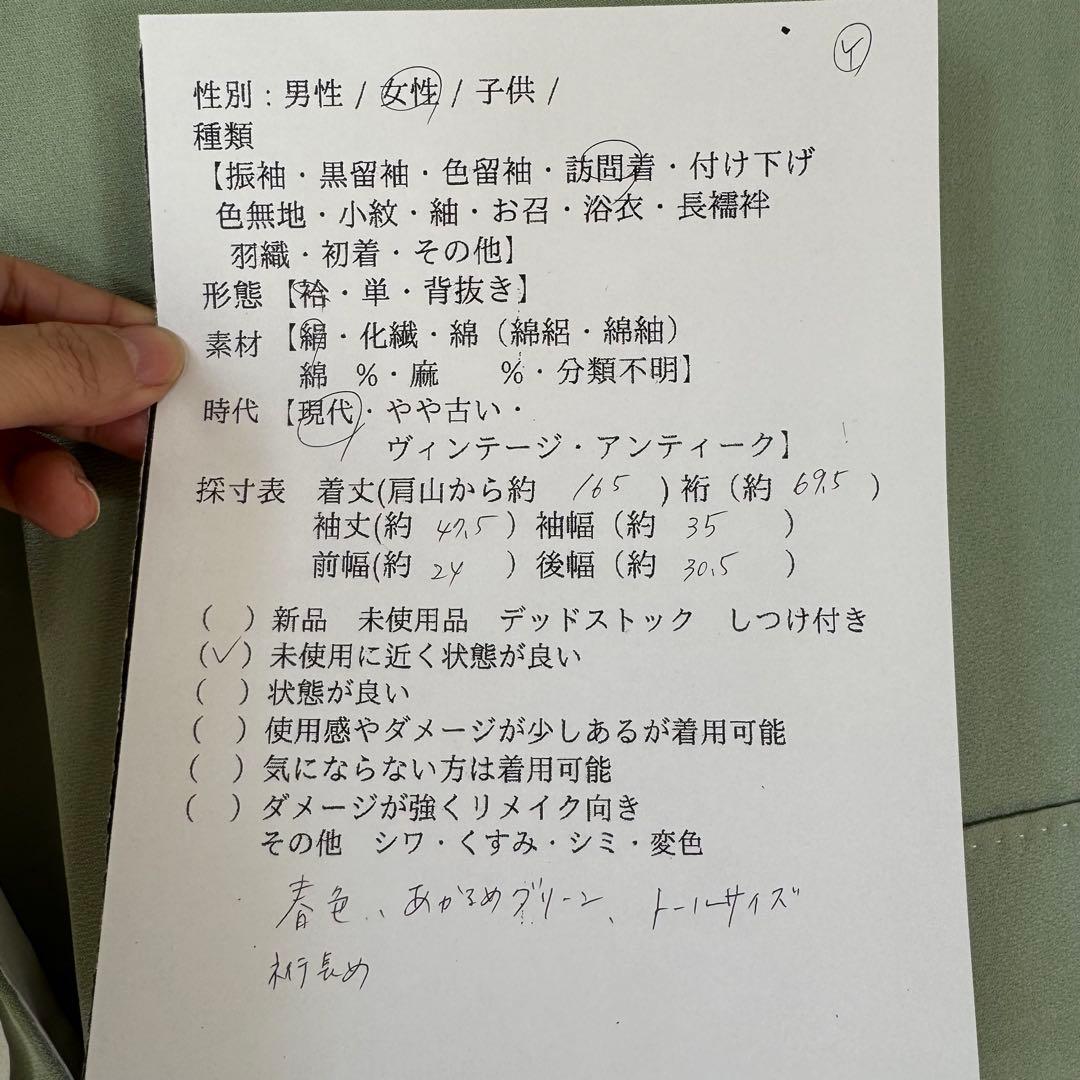 Y
性別：男性 / 女性 / 子供 /
種類
【振袖・黒留袖・色留袖・訪問着・付け下げ
色無地・小紋・紬・お召・浴衣・長襦袢
羽織・初着・その他】
形態【袷・単・背抜き】
素材【絹・化繊・綿（綿絽・綿紬）
綿　％・麻　　％・分類不明】
時代【現代・やや古い・
ヴィンテージ・アンティーク】
採寸表　着丈(肩山から約　165　) 裄（約　69.5　）
袖丈(約　47.5　) 袖幅（約　35　）
前幅(約　24　) 後幅（約　30.5　）
（　）新品　未使用品　デッドストック　しつけ付き
（✓）未使用に近く状態が良い
（　）状態が良い
（　）使用感やダメージが少しあるが着用可能
（　）気にならない方は着用可能
（　）ダメージが強くリメイク向き
その他　シワ・くすみ・シミ・変色
春色、あかるめグリーン、トールサイズ
裄長め